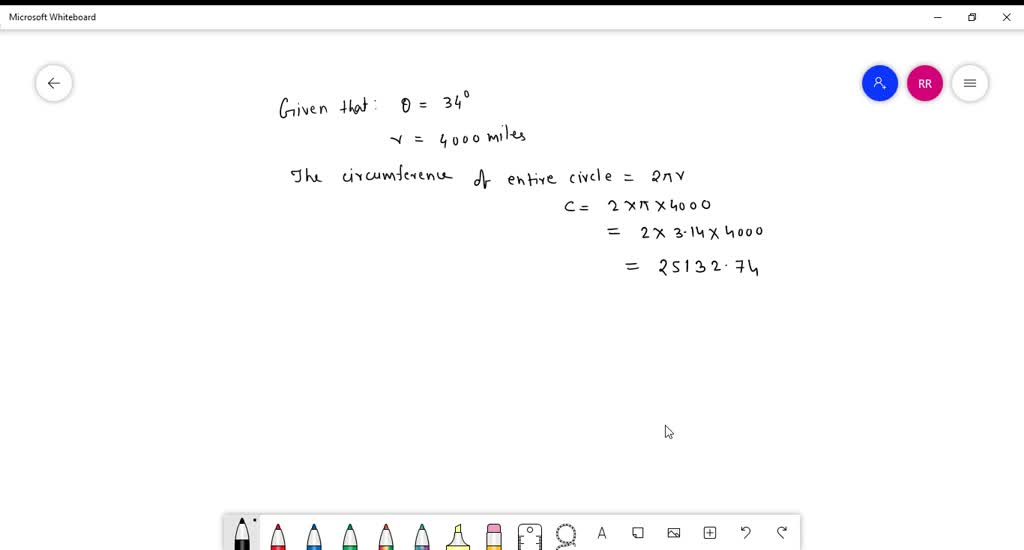 Microsoft Whiteboard
RR
Given that: θ = 34⁰
r = 4000 miles
The circumference of entire circle = 2πr
C = 2 × π × 4000
= 2 × 3.14 × 4000
= 25132.74
A